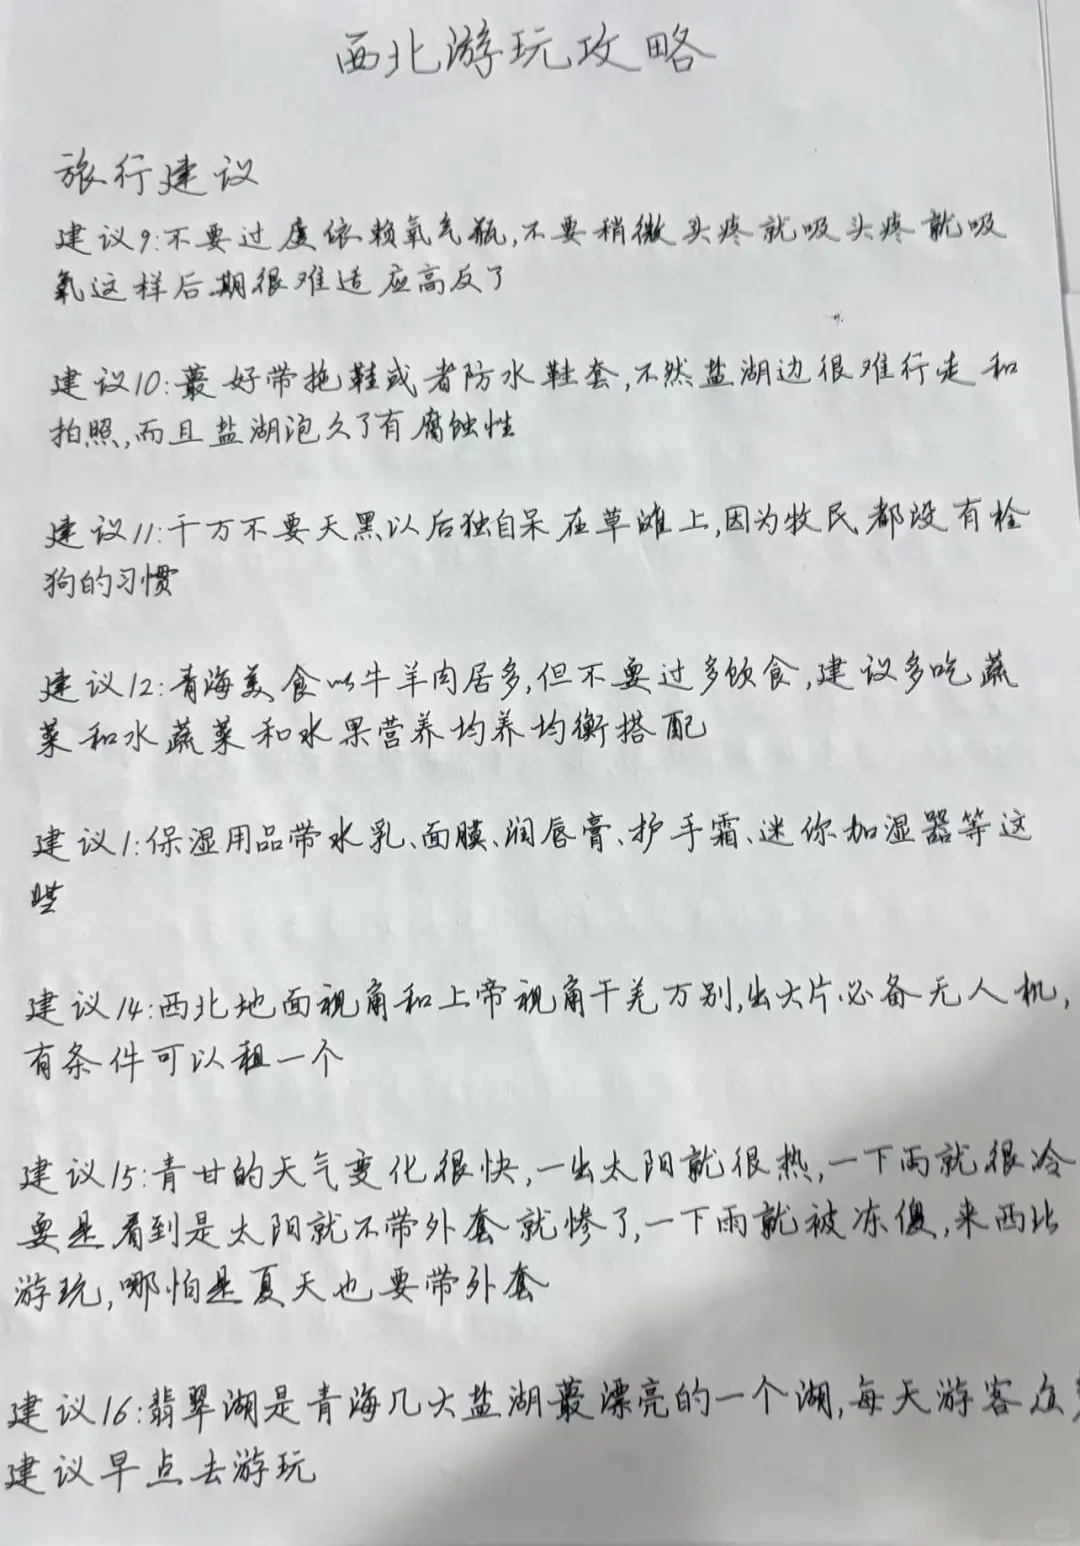 西北游玩攻略
旅行建议
建议9:不要过度依赖氧气瓶,不要稍微头疼就吸头疼就吸
氧这样后期很难适应高反了
建议10:最好带拖鞋或者防水鞋套,不然盐湖边很难行走和
拍照,而且盐湖泡久了有腐蚀性
建议11:千万不要天黑以后独自呆在草滩上,因为牧民都没有栓
狗的习惯
建议12:青海美食以牛羊肉居多,但不要过多饮食,建议多吃蔬
菜和水蔬菜和水果营养均养均衡搭配
建议1:保湿用品带水乳、面膜、润唇膏、护手霜、迷你加湿器等这
些
建议14:西北地面视角和上帝视角千差万别,出大片必备无人机,
有条件可以租一个
建议15:青甘的天气变化很快,一出太阳就很热,一下雨就很冷
要是看到是太阳就不带外套就惨了,一下雨就被冻傻,来西北
游玩,哪怕是夏天也要带外套
建议16:翡翠湖是青海几大盐湖最漂亮的一个湖,每天游客众
建议早点去游玩